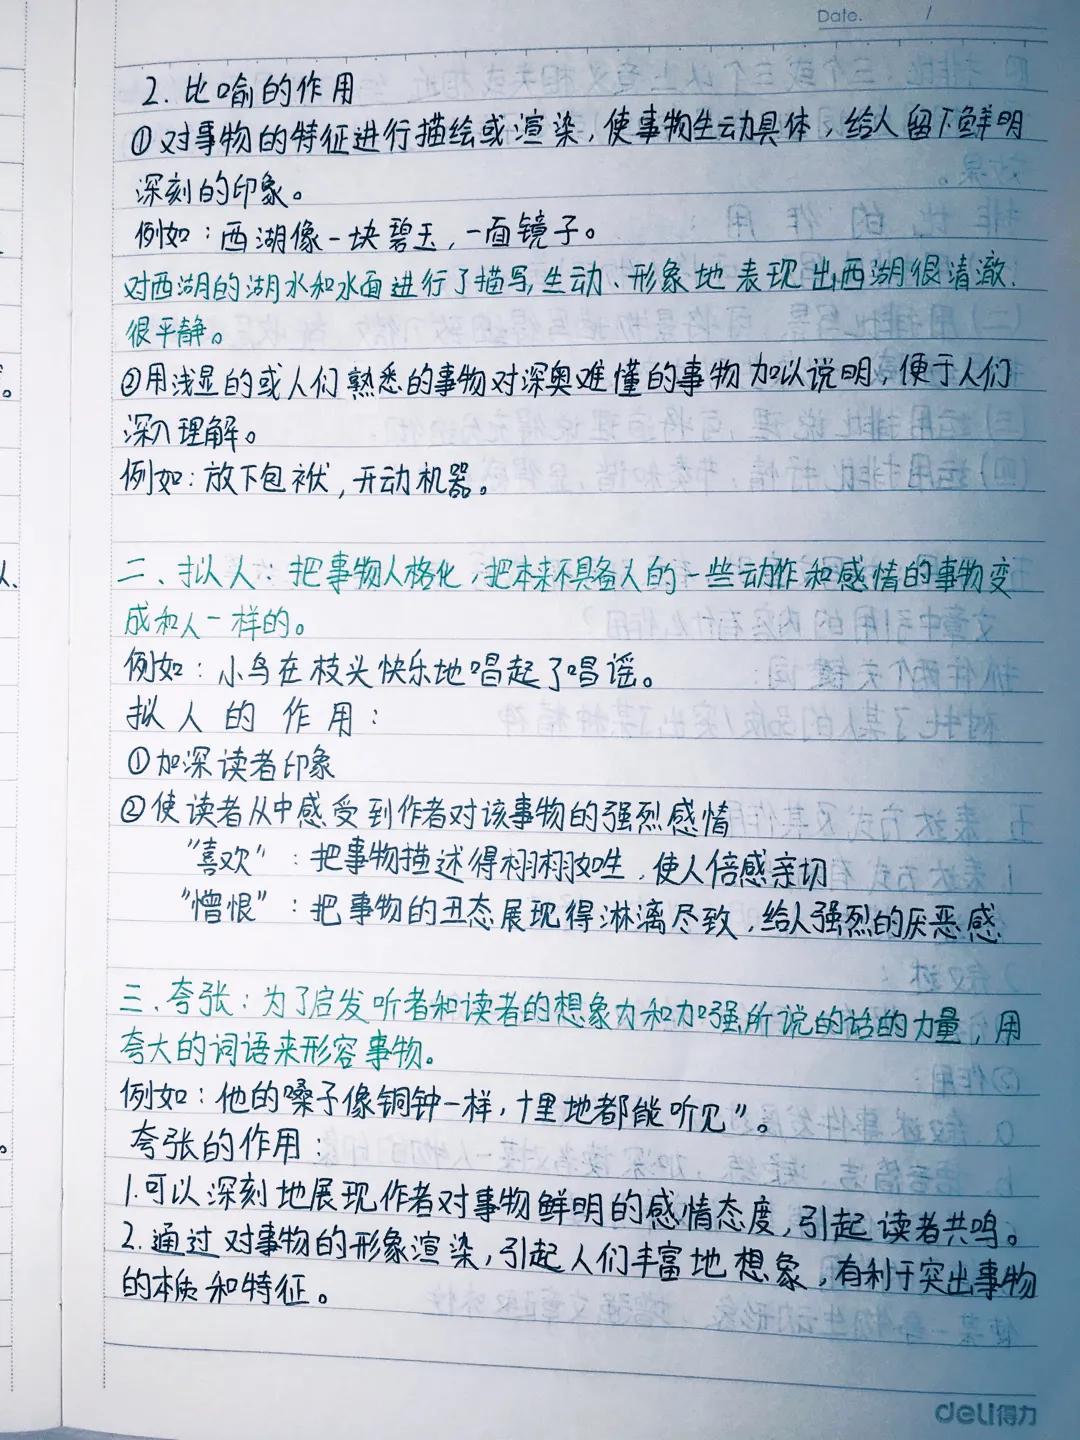 Date. /
2. 比喻的作用
①对事物的特征进行描绘或渲染，使事物生动具体，给人留下鲜明
深刻的印象。
例如：西湖像一块碧玉，一面镜子。
对西湖的湖水和水面进行了描写，生动、形象地表现出西湖很清澈、
很平静。
②用浅显的或人们熟悉的事物对深奥难懂的事物加以说明，便于人们
深入理解。
例如：放下包袱，开动机器。
二、拟人：把事物人格化，把本来不具备人的一些动作和感情的事物变
成和人一样的。
例如：小鸟在枝头快乐地唱起了唱谣。
拟人的作用：
①加深读者印象
②使读者从中感受到作者对该事物的强烈感情
"喜欢"：把事物描述得栩栩如生，使人倍感亲切
"憎恨"：把事物的丑态展现得淋漓尽致，给人强烈的厌恶感
三、夸张：为了启发听者和读者的想象力和加强所说的话的力量，用
夸大的词语来形容事物。
例如：他的嗓子像铜钟一样，十里地都能听见"。
夸张的作用：
1.可以深刻地展现作者对事物鲜明的感情态度，引起读者共鸣。
2.通过对事物的形象渲染，引起人们丰富地想象，有利于突出事物
的本质和特征。
deli得力